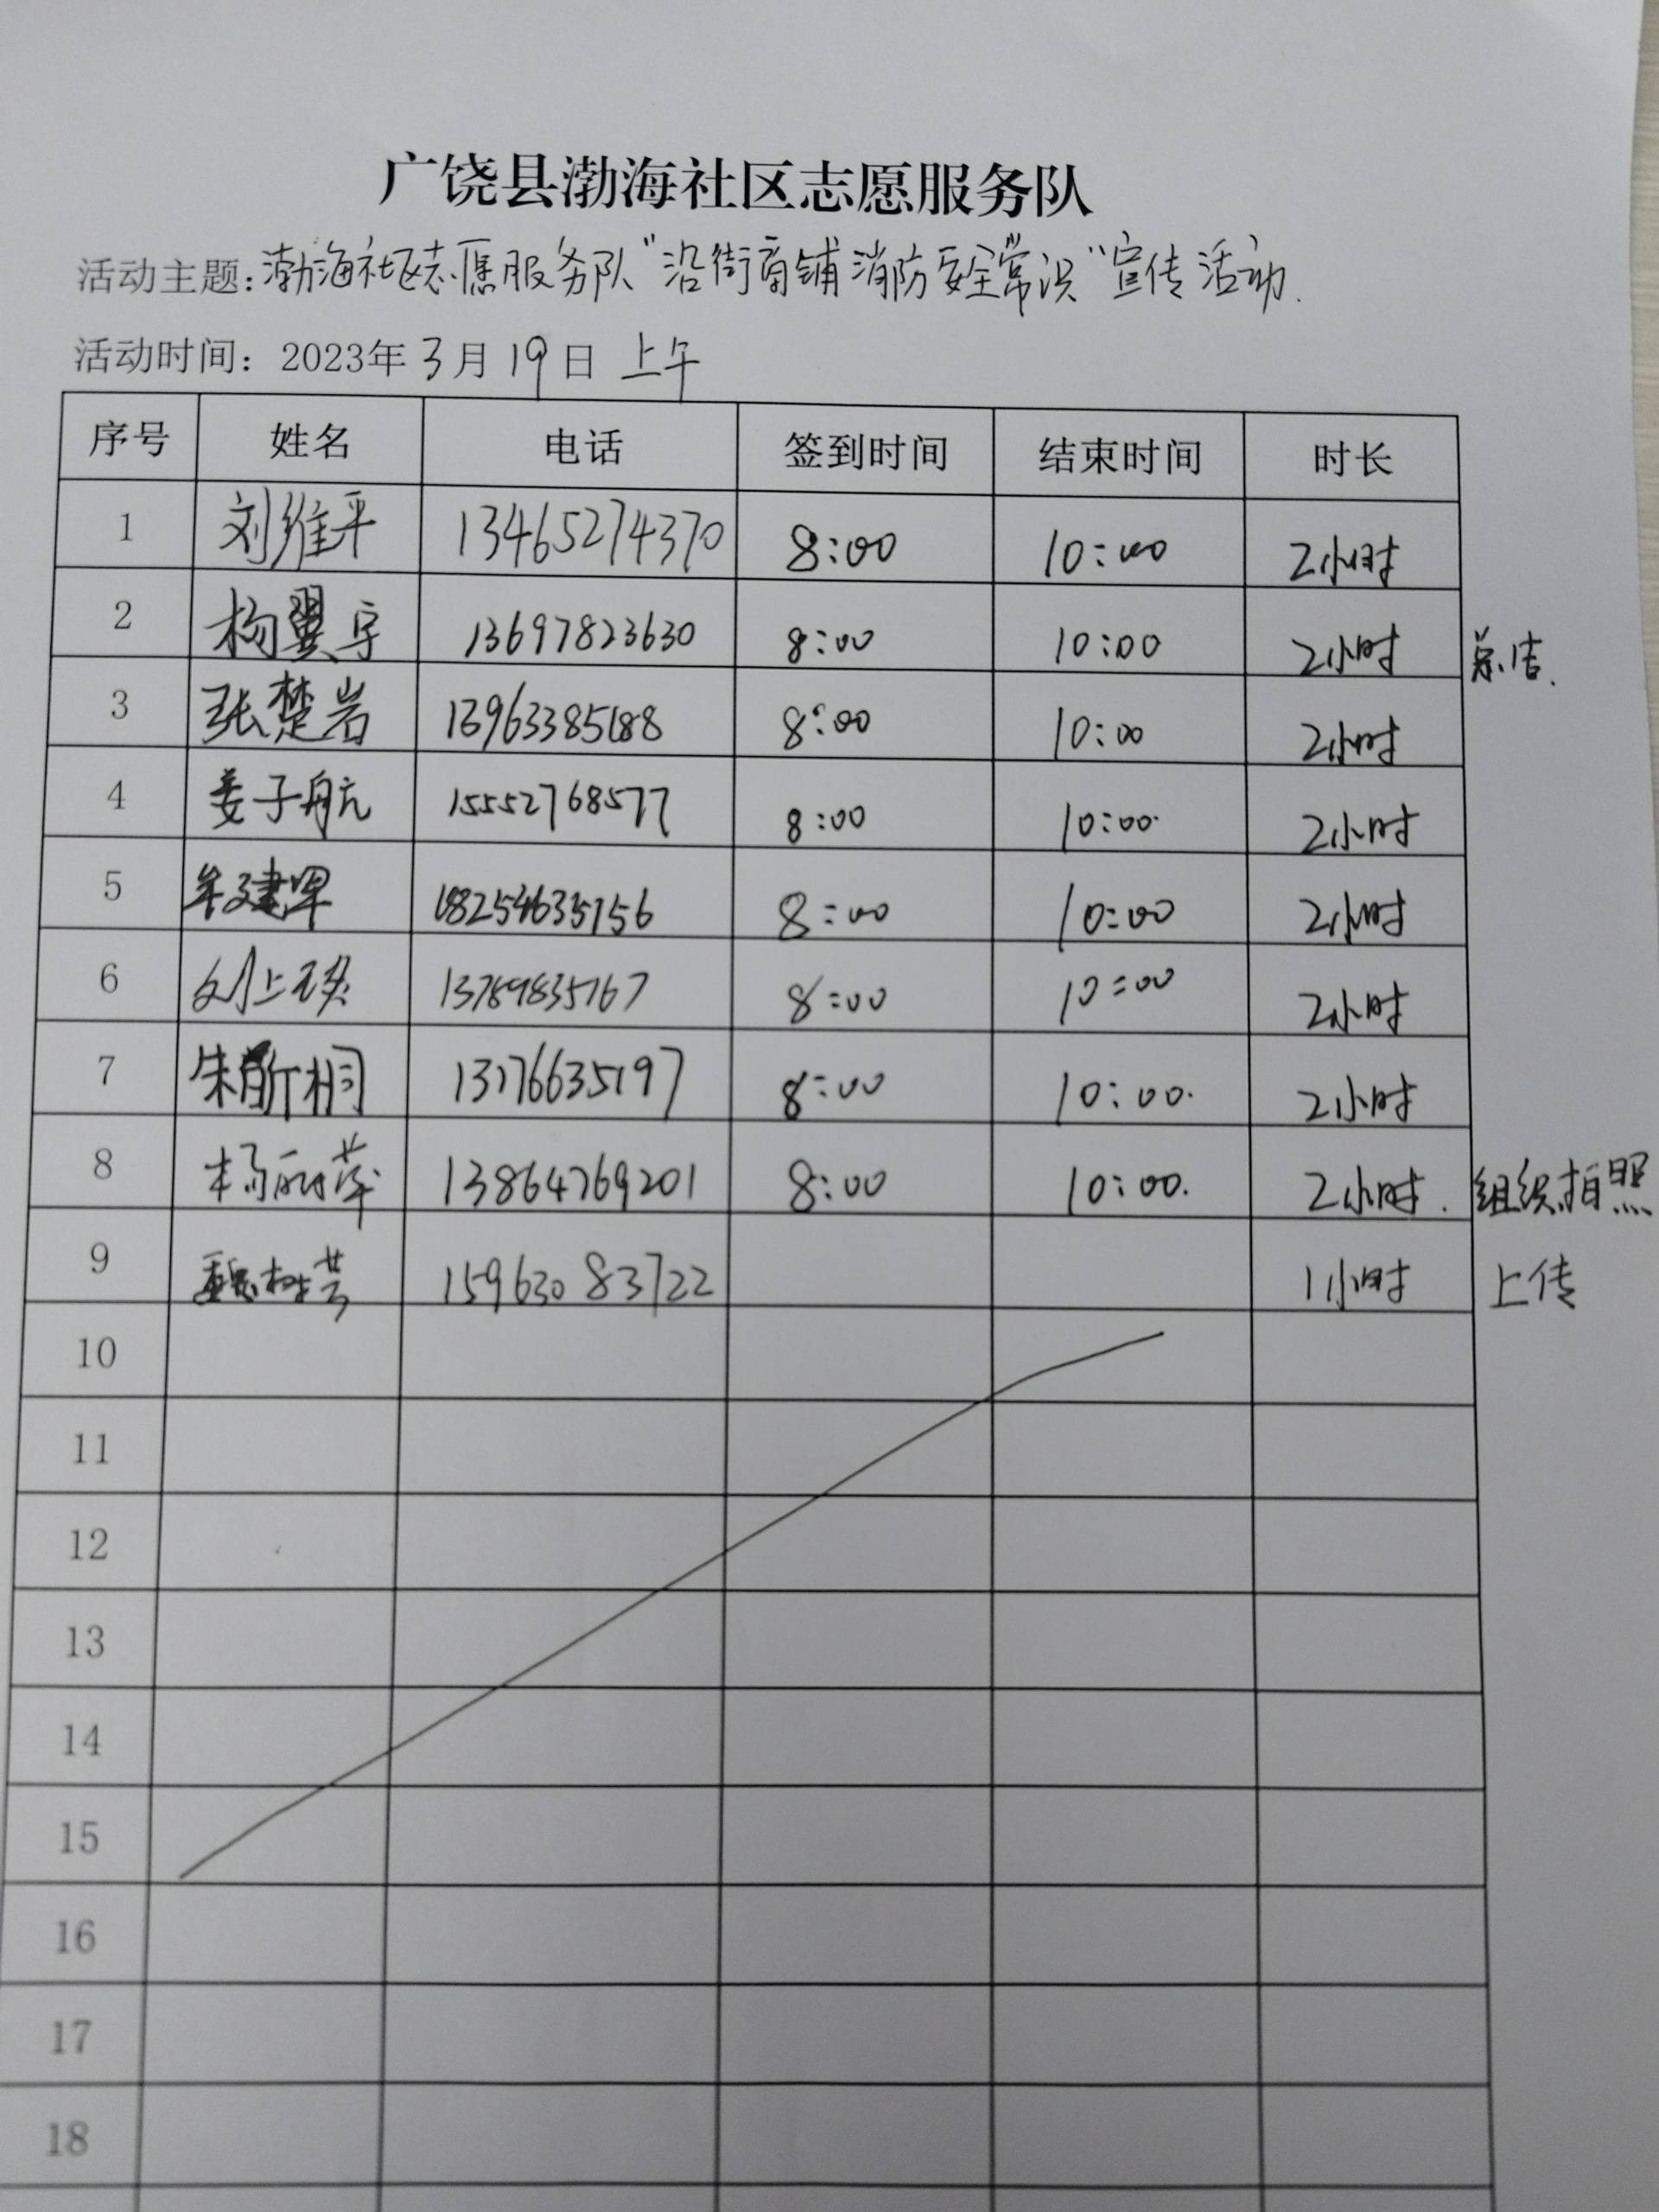 广饶县渤海社区志愿服务队
活动主题:渤海社区志愿服务队"沿街商铺消防安全常识"宣传活动.
活动时间：2023年3月19日 上午
序号 姓名 电话 签到时间 结束时间 时长
1 刘维平 13465274370 8:00 10:00 2小时
2 杨翼宇 13697823630 8:00 10:00 2小时 总结.
3 张楚岩 13963385188 8:00 10:00 2小时
4 姜子航 15552768577 8:00 10:00 2小时
5 牟建军 18254635156 8:00 10:00 2小时
6 刘上瑛 13789835767 8:00 10:00 2小时
7 朱昕桐 13176635197 8:00 10:00. 2小时
8 杨丽萍 13864769201 8:00 10:00. 2小时. 组织,拍照
9 魏树芸 15963083722 1小时 上传
10
11
12
13
14
15
16
17
18